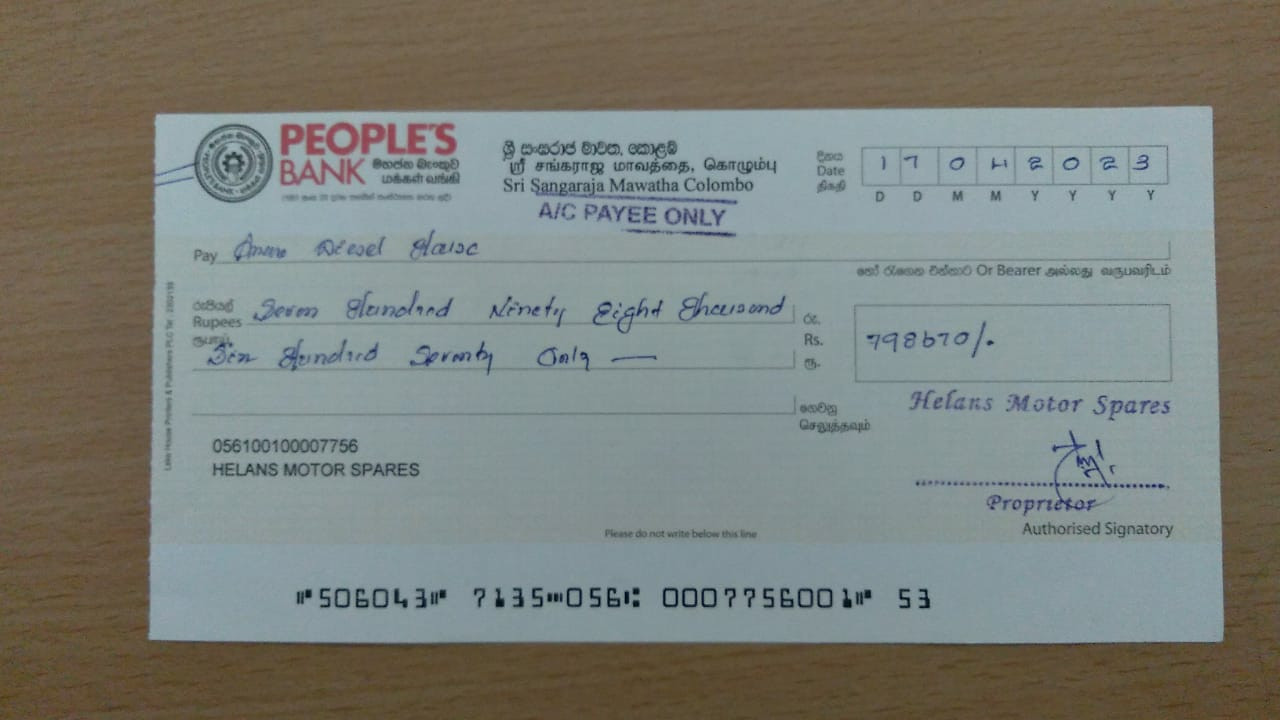 PEOPLE'S
BANK මහජන බැංකුව
மக்கள் வங்கி
ශ්‍රී සංඝරාජ මාවත, කොළඹ
ஸ்ரீ சங்கராஜ மாவத்தை, கொழும்பு
Sri Sangaraja Mawatha Colombo
A/C PAYEE ONLY
දිනය
Date
திகதி
1 7 0 4 2 0 2 3
D D M M Y Y Y Y
Pay Diesel House
හෝ රැගෙන එන්නාට Or Bearer அல்லது வருபவரிடம்
රුපියල්
Rupees Seven Hundred Ninety Eight Thousand
ரூபாய்
Six Hundred Seventy Only —
රු.
Rs.
ரூ.
798670/.
ගෙවනු
செலுத்தவும்
Helans Motor Spares
056100100007756
HELANS MOTOR SPARES
Proprietor
Authorised Signatory
Please do not write below this line
Lake House Printers & Publishers PLC
⑈506043⑈ 7135⑉056⑆ 0007756001⑈ 53